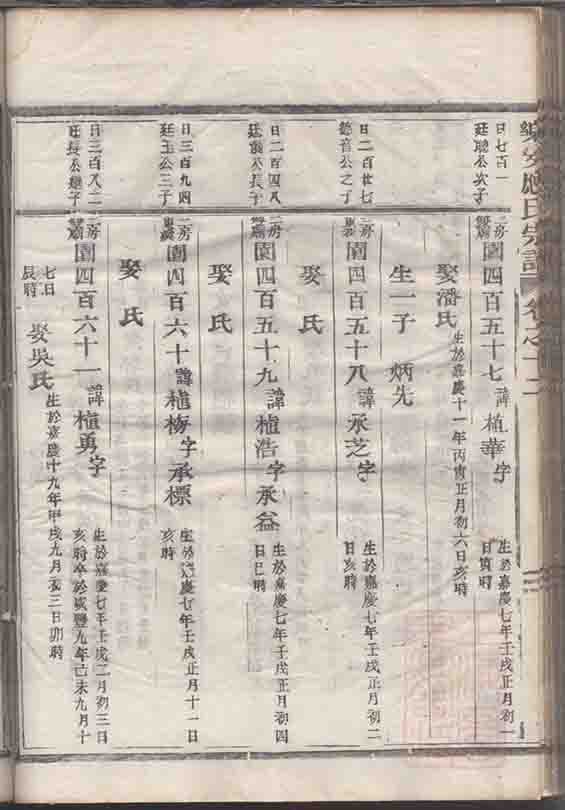 樂安應氏宗譜 卷之十二
日七百一
廷聰公次子
二房園四百五十七 諱植華字
生於嘉慶七年壬戌正月初一
日寅時
娶潘氏 生於嘉慶十一年丙寅正月初六日亥時
生一子 炳先
日二百廿七
德音公之子
二房園四百五十八 諱承芝字
生於嘉慶七年壬戌正月初二
日亥時
娶 氏
日二百四八
公長子
二房園四百五十九 諱植浩字承益
生於嘉慶七年壬戌正月初四
日巳時
娶 氏
日三百九四
廷玉公三子
二房園四百六十 諱植楊字承標
生於嘉慶七年壬戌正月十一日
亥時
娶 氏
日三百八二
廷長公幼子
二房園四百六十一 諱植勇字
生於嘉慶七年壬戌二月初三日
亥時卒於咸豐九年己未九月十
七日
辰時
娶吳氏 生於嘉慶十九年甲戌九月初三日卯時